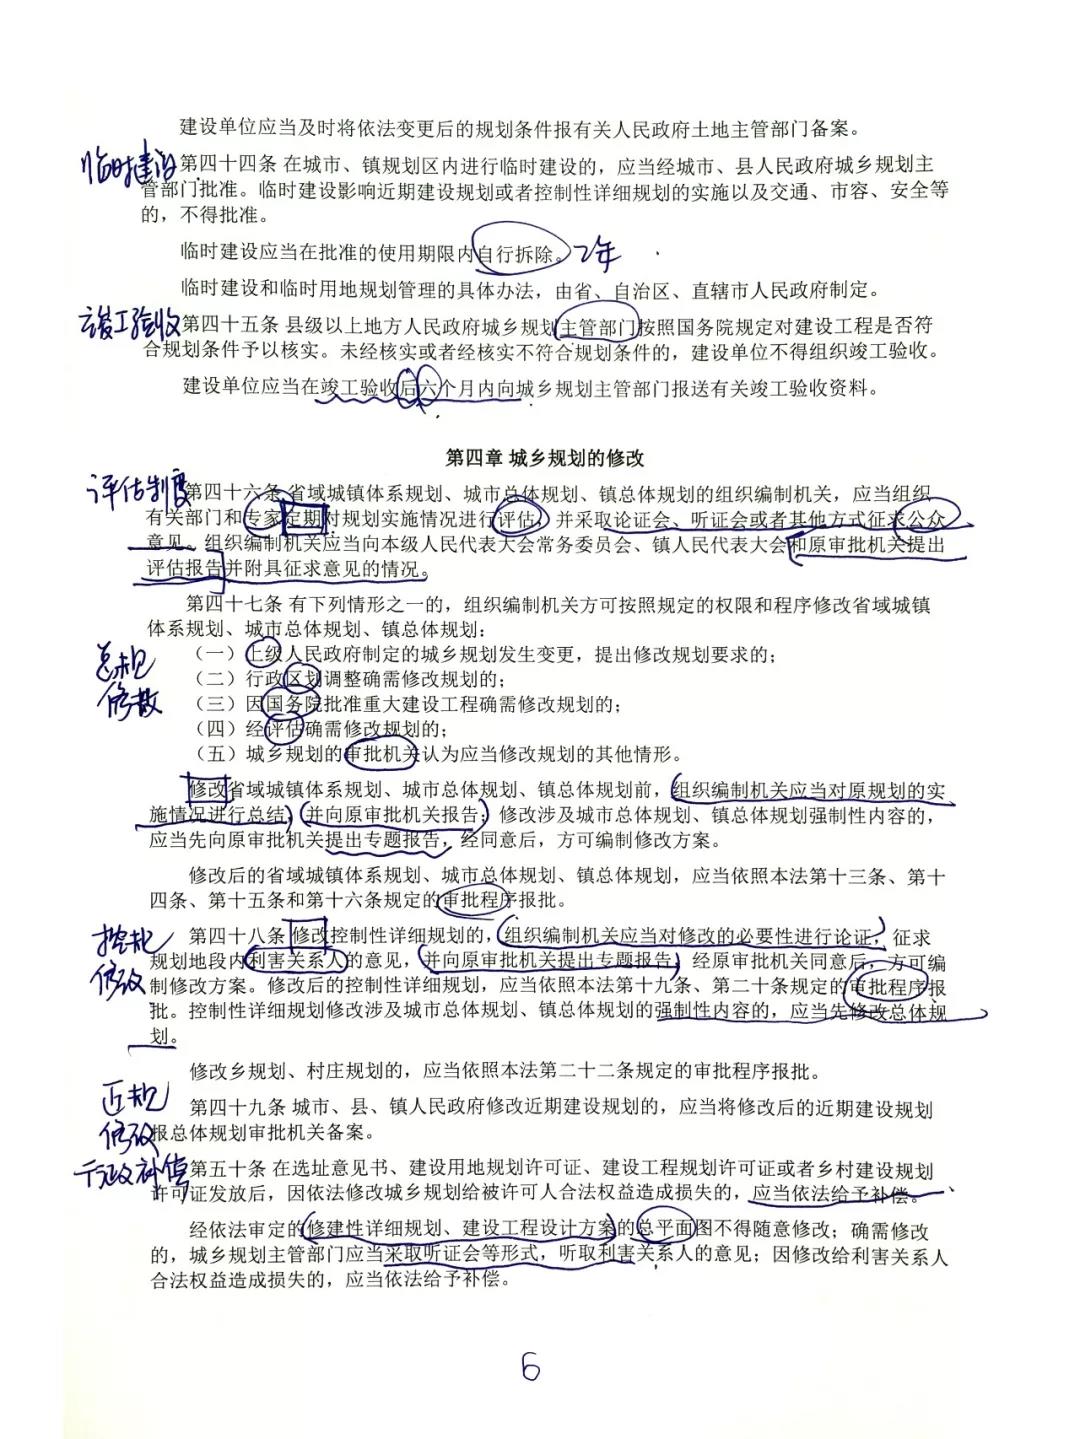 建设单位应当及时将依法变更后的规划条件报有关人民政府土地主管部门备案。
临时建设
第四十四条 在城市、镇规划区内进行临时建设的，应当经城市、县人民政府城乡规划主
管部门批准。临时建设影响近期建设规划或者控制性详细规划的实施以及交通、市容、安全等
的，不得批准。
临时建设应当在批准的使用期限内自行拆除。 2年
临时建设和临时用地规划管理的具体办法，由省、自治区、直辖市人民政府制定。
竣工验收
第四十五条 县级以上地方人民政府城乡规划主管部门按照国务院规定对建设工程是否符
合规划条件予以核实。未经核实或者经核实不符合规划条件的，建设单位不得组织竣工验收。
建设单位应当在竣工验收后六个月内向城乡规划主管部门报送有关竣工验收资料。
第四章 城乡规划的修改
评估制度
第四十六条 省域城镇体系规划、城市总体规划、镇总体规划的组织编制机关，应当组织
有关部门和专家定期对规划实施情况进行评估，并采取论证会、听证会或者其他方式征求公众
意见。组织编制机关应当向本级人民代表大会常务委员会、镇人民代表大会和原审批机关提出
评估报告并附具征求意见的情况。
第四十七条 有下列情形之一的，组织编制机关方可按照规定的权限和程序修改省域城镇
体系规划、城市总体规划、镇总体规划：
总规
修改
（一）上级人民政府制定的城乡规划发生变更，提出修改规划要求的；
（二）行政区划调整确需修改规划的；
（三）因国务院批准重大建设工程确需修改规划的；
（四）经评估确需修改规划的；
（五）城乡规划的审批机关认为应当修改规划的其他情形。
修改省域城镇体系规划、城市总体规划、镇总体规划前，组织编制机关应当对原规划的实
施情况进行总结，并向原审批机关报告；修改涉及城市总体规划、镇总体规划强制性内容的，
应当先向原审批机关提出专题报告，经同意后，方可编制修改方案。
修改后的省域城镇体系规划、城市总体规划、镇总体规划，应当依照本法第十三条、第十
四条、第十五条和第十六条规定的审批程序报批。
控规
修改
第四十八条 修改控制性详细规划的，组织编制机关应当对修改的必要性进行论证，征求
规划地段内利害关系人的意见，并向原审批机关提出专题报告，经原审批机关同意后，方可编
制修改方案。修改后的控制性详细规划，应当依照本法第十九条、第二十条规定的审批程序报
批。控制性详细规划修改涉及城市总体规划、镇总体规划的强制性内容的，应当先修改总体规
划。
修改乡规划、村庄规划的，应当依照本法第二十二条规定的审批程序报批。
近规
修改
第四十九条 城市、县、镇人民政府修改近期建设规划的，应当将修改后的近期建设规划
报总体规划审批机关备案。
行政补偿
第五十条 在选址意见书、建设用地规划许可证、建设工程规划许可证或者乡村建设规划
许可证发放后，因依法修改城乡规划给被许可人合法权益造成损失的，应当依法给予补偿。
经依法审定的修建性详细规划、建设工程设计方案的总平面图不得随意修改；确需修改
的，城乡规划主管部门应当采取听证会等形式，听取利害关系人的意见；因修改给利害关系人
合法权益造成损失的，应当依法给予补偿。
6